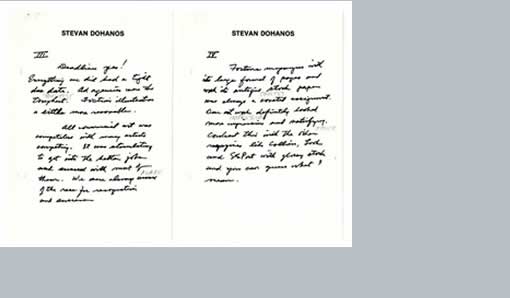 STEVAN DOHANOS
III
Deadlines yes!
Everything we did had a tight
due date. Ad agencies were the
toughest. Fiction illustration
a little more reasonable.
All commercial art was
competitive with many artists
competing. It was stimulating
to get into the better jobs
and succeed with most of
them. We were always aware
of the race for recognition
and success
STEVAN DOHANOS
IV
Fortune magazine with
its large format of pages and
stock paper
was always a coveted assignment.
Our art work definitely looked
more impressive and satisfying.
Contrast this with the other
magazines like Colliers, Look
and S.E. Post with glossy stock
and you can guess what I
mean.